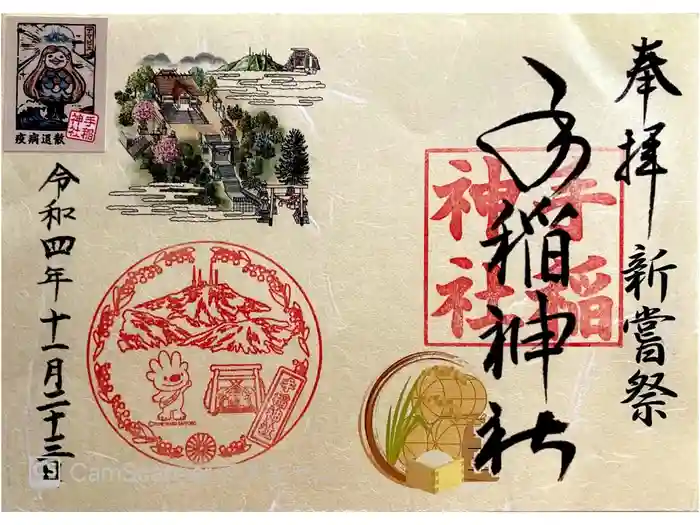 奉拝 新嘗祭
手稲神社
手稲
神社
アマビエ
手稲
神社
疫病退散
手稲神社
令和四年十一月二十三日
CamScanner